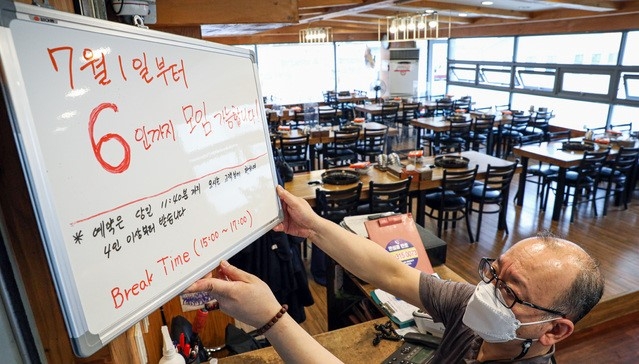 7월 1일부터
6인까지 모임 가능합니다!
* 예약은 당일 11:40분 까지 오시는 고객분에 한하여
4인 이상부터 받습니다
Break Time (15:00~17:00)